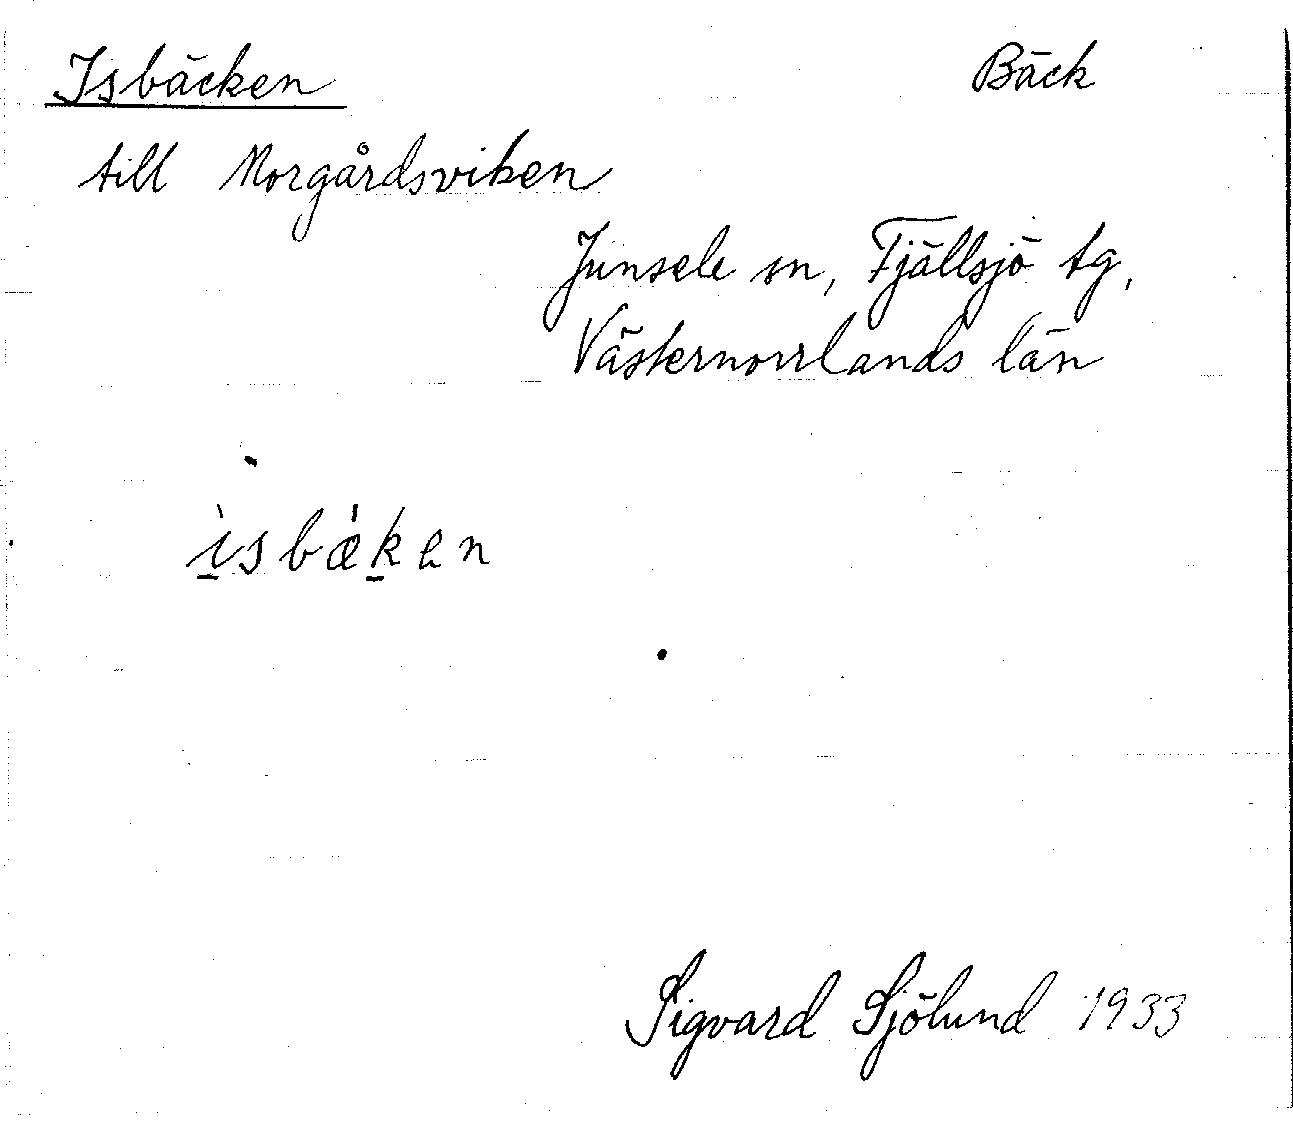 Isbäcken Bäck
till Norgårdsviken
Junsele sn, Fjällsjö tg,
Västernorrlands län
ì̱sbæ̀ḵen
Sigvard Sjölund 1933